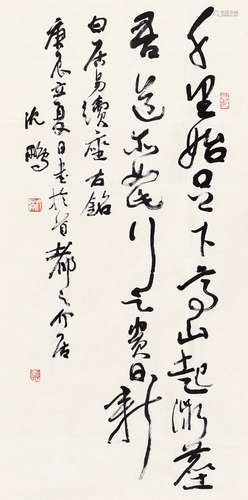 千里始足下高山起微尘
吾道亦如此行之贵日新
白居易續座右銘
庚辰立夏日书於首都之介居
沈鹏